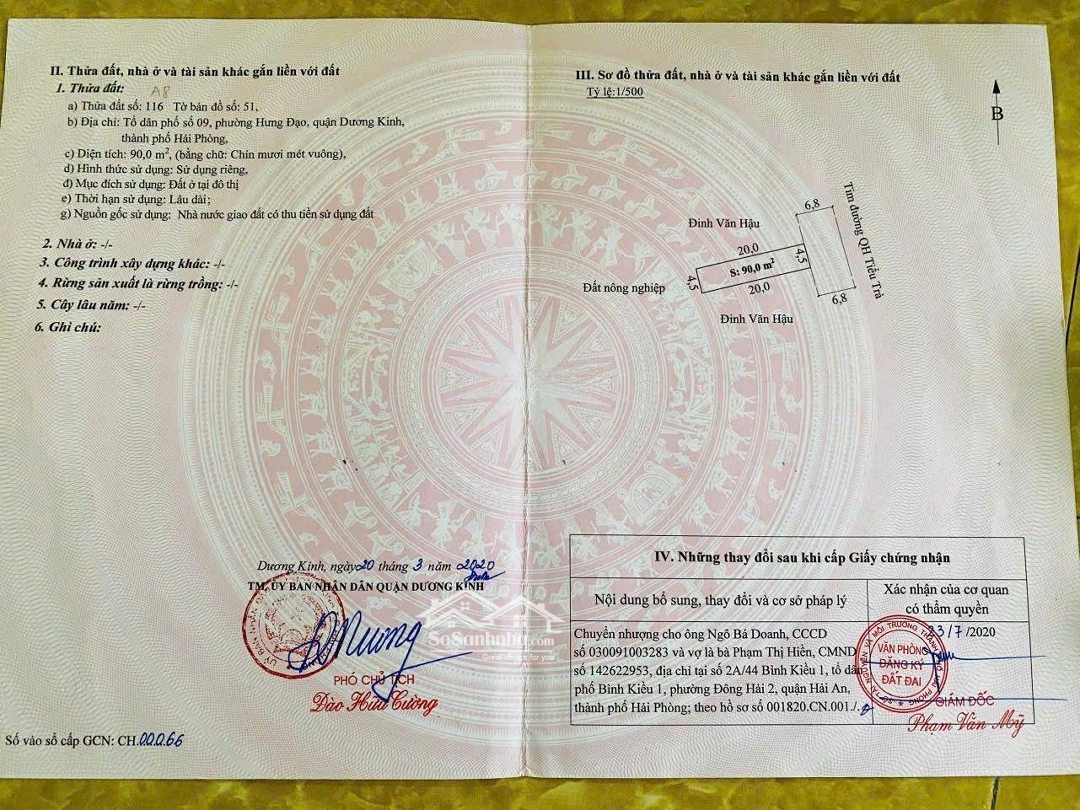 II. Thửa đất, nhà ở và tài sản khác gắn liền với đất
1. Thửa đất: A8
a) Thửa đất số: 116 Tờ bản đồ số: 51,
b) Địa chỉ: Tổ dân phố số 09, phường Hưng Đạo, quận Dương Kinh,
thành phố Hải Phòng,
c) Diện tích: 90,0 m², (bằng chữ: Chín mươi mét vuông),
d) Hình thức sử dụng: Sử dụng riêng,
đ) Mục đích sử dụng: Đất ở tại đô thị
e) Thời hạn sử dụng: Lâu dài;
g) Nguồn gốc sử dụng: Nhà nước giao đất có thu tiền sử dụng đất
2. Nhà ở: -/-
3. Công trình xây dựng khác: -/-
4. Rừng sản xuất là rừng trồng: -/-
5. Cây lâu năm: -/-
6. Ghi chú:
Dương Kinh, ngày 20 tháng 3 năm 2020
TM. ỦY BAN NHÂN DÂN QUẬN DƯƠNG KINH
PHÓ CHỦ TỊCH
Đào Hữu Cường
Số vào sổ cấp GCN: CH.00066
SoSanhnha.com
Great choice for you
III. Sơ đồ thửa đất, nhà ở và tài sản khác gắn liền với đất
Tỷ lệ:1/500
B
6,8
Tim đường QH Tiểu Trà
Đinh Văn Hậu
20,0
4,5
S: 90,0 m²
4,5
Đất nông nghiệp
20,0
6,8
Đinh Văn Hậu
IV. Những thay đổi sau khi cấp Giấy chứng nhận
Nội dung bổ sung, thay đổi và cơ sở pháp lý
Xác nhận của cơ quan
có thẩm quyền
Chuyển nhượng cho ông Ngô Bá Doanh, CCCD
số 030091003283 và vợ là bà Phạm Thị Hiền, CMND
số 142622953, địa chỉ tại số 2A/44 Bình Kiều 1, tổ dân
phố Bình Kiều 1, phường Đông Hải 2, quận Hải An,
thành phố Hải Phòng; theo hồ sơ số 001820.CN.001./.
23/7/2020
VĂN PHÒNG
ĐĂNG KÝ
ĐẤT ĐAI
GIÁM ĐỐC
Phạm Văn Mỹ